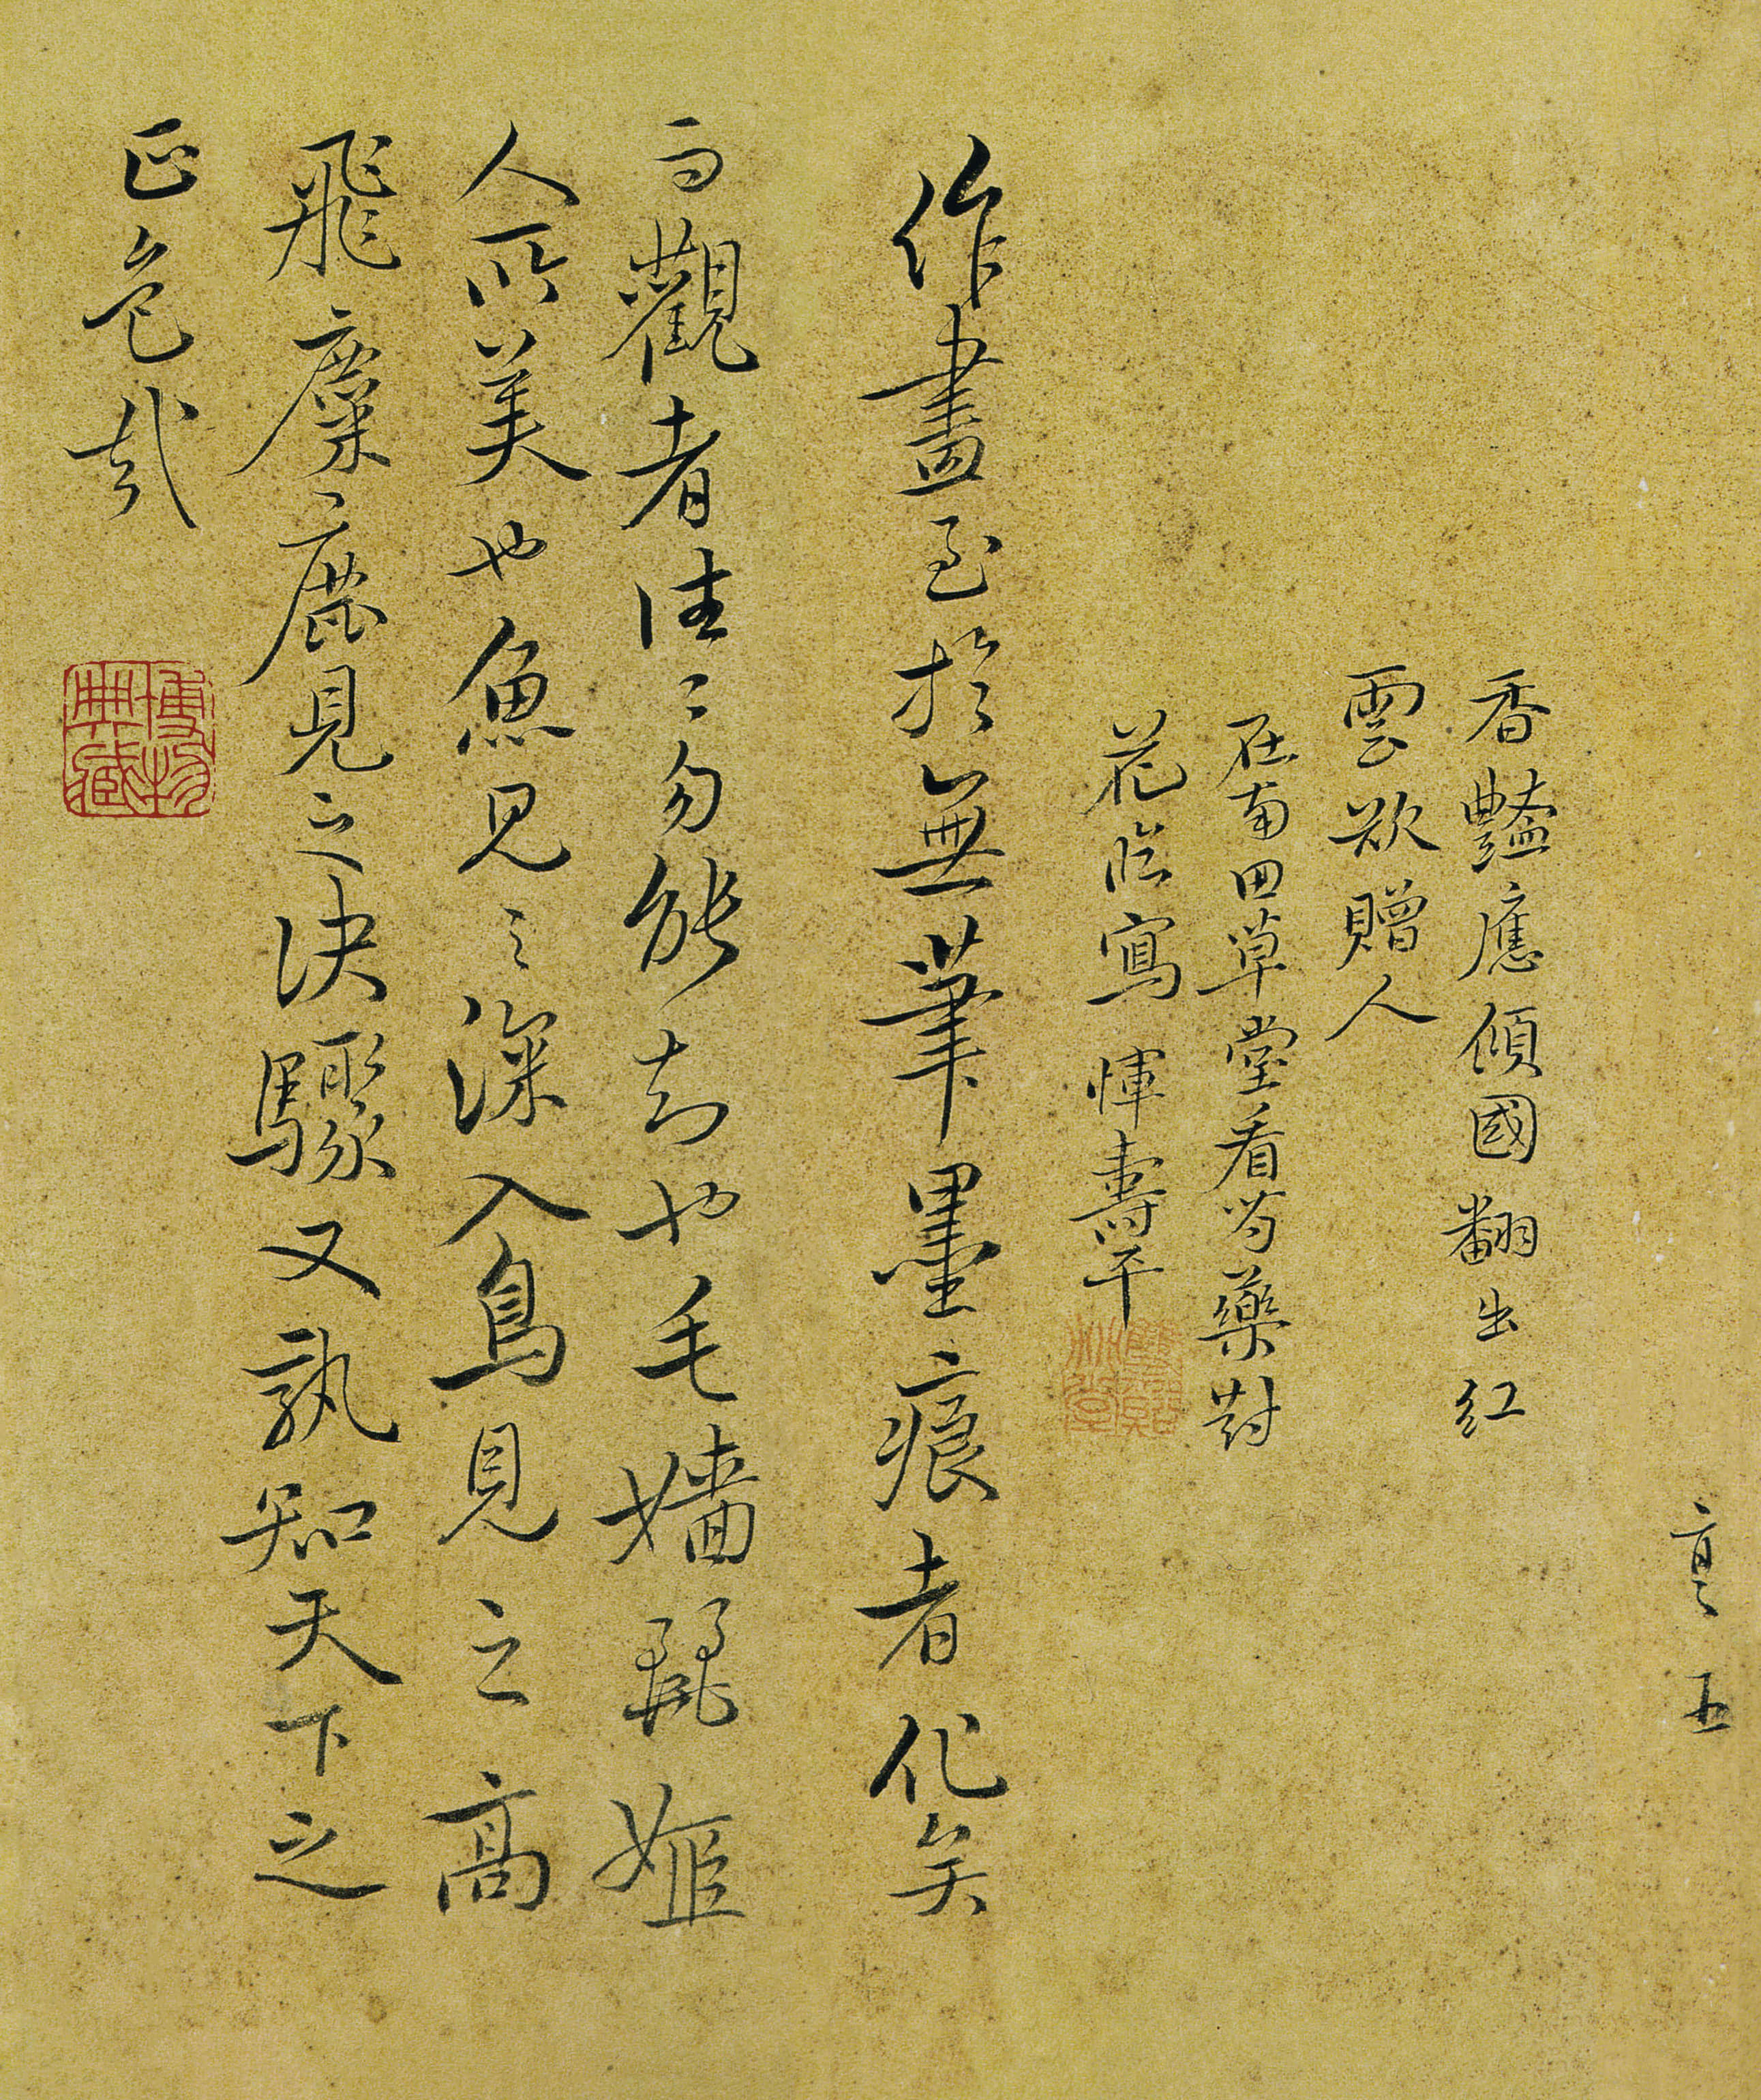 亨五
香豔應傾國翻出紅
雲欲贈人
在南田草堂看芍藥對
花臨寫惲壽平
作畫至於無筆墨痕者化矣
而觀者往〻勿能知也毛嬙麗姬
人所美也魚見之深入鳥見之高
飛麋鹿見之決驟又孰知天下之
正色哉
博物典藏